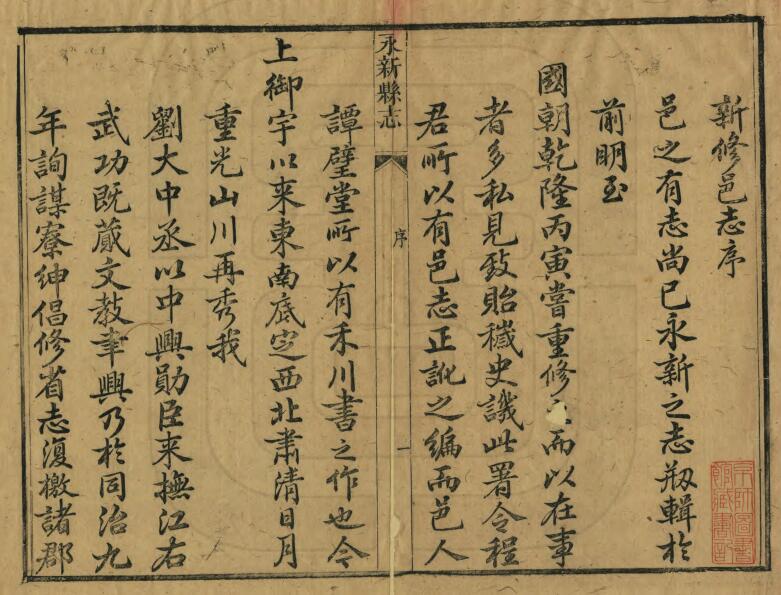 新修邑志序
邑之有志尚已永新之志剏輯於
前明至
國朝乾隆丙寅嘗重修之而以在事
者多私見致貽穢史譏此署令程
君所以有邑志正訛之編而邑人
永新縣志
序
一
譚璧堂所以有禾川書之作也今
上御宇以来東南底定西北肅清日月
重光山川再秀我
劉大中丞以中興勛臣来撫江右
武功既蕆文教聿興乃於同治九
年詢謀寮紳倡修省志復檄諸郡
京師圖書
館藏書印